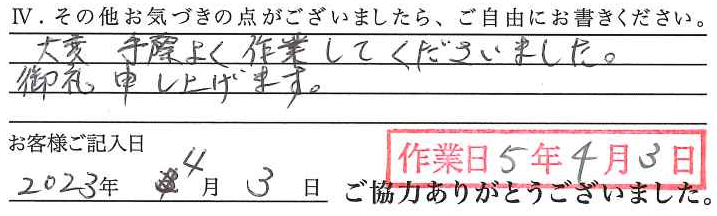 Ⅳ．その他お気づきの点がございましたら、ご自由にお書きください。
大変 手際よく 作業してくださいました。
御礼 申し上げます。
お客様ご記入日
2023年 4月 3日
作業日 5年4月3日
ご協力ありがとうございました。